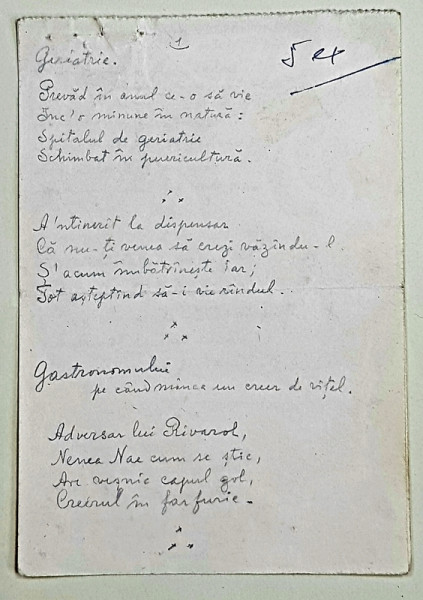 1
5 ex
Geriatrie.
Prevăd în anul ce-o să vie
Înc'o minune în natură:
Spitalul de geriatrie
Schimbat în puericultură.
A'ntinerit la dispensar
Că nu-ți venea să crezi văzîndu-l.
Ș'acum îmbătrînește iar;
Tot așteptînd să-i vie rîndul.
Gastronomului
pe când mînca un creer de vițel.
Adversar lui Rivarol,
Nenea Nae cum se știe,
Are veșnic capul gol,
Creerul în farfurie.